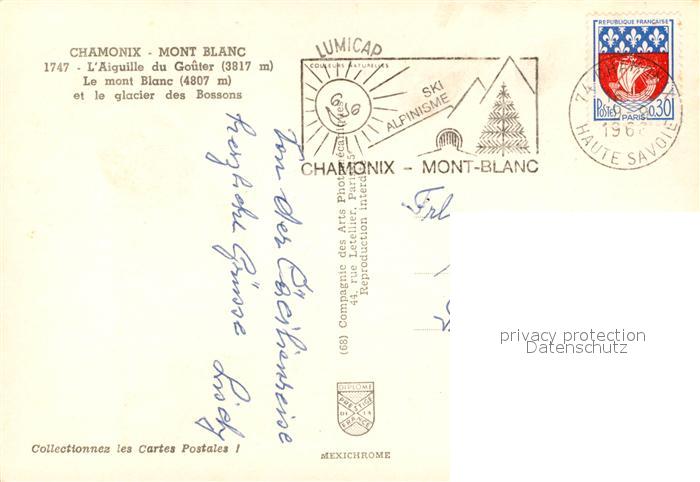 CHAMONIX - MONT BLANC
1747 - L'Aiguille du Goûter (3817 m)
Le mont Blanc (4807 m)
et le glacier des Bossons
LUMICAP
COULEURS NATURELLES
SKI
ALPINISME
CHAMONIX - MONT-BLANC
REPUBLIQUE FRANÇAISE
POSTES 0,30
PARIS
74
HAUTE SAVOIE
Von der Cäcilienreise
herzliche Grüsse
(68) Compagnie des Arts Photomécaniques
44, rue Letellier, Paris-15e
Reproduction interdite
Frl
privacy protection
Datenschutz
DIPLOME
PRESTIGE
DE LA
FRANCE
Collectionnez les Cartes Postales !
MEXICHROME